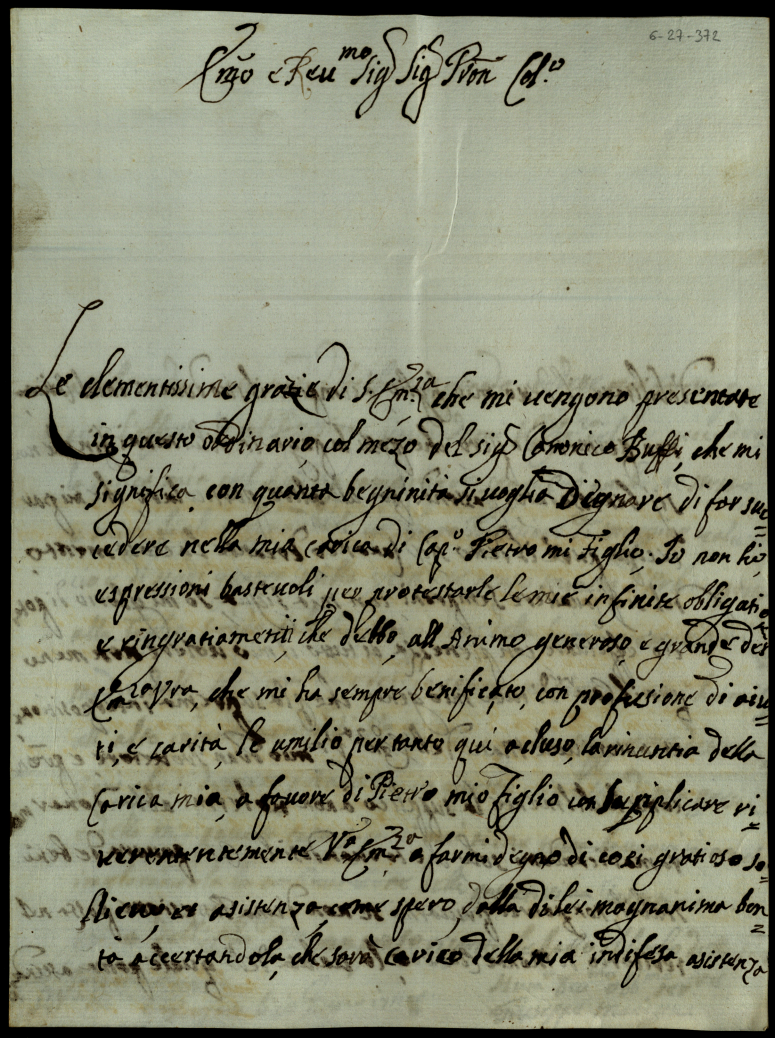 6-27-372
Emo e Reu mo Sig Sig Pron Col.o
Le clementissime grazie di S. Em.za che mi uengono presentate
in questo ordinario, col mezo del sig Canonico Buffi, che mi
significa, con quanta begninità si uoglia Degnare di far suc=
cedere nella mia carica di Cap.o Pietro mi Figlio. Io non hò
espressioni basteuoli per protestarle le mie infinite obligatio
e ringratiametti, che debbo, all Animo generoso, e grande del
Em.za Vra, che mi ha sempre benificato, con profusione di aiu=
ti, e carità, le umilio per tanto qui acluso, la rinuntia della
Carica mia, a fauore di Pietro mio Figlio con suplicare ri=
uerentemente V.a Em.za a farmi degno di cosi gratioso so=
llieuo et asistenza, come spero, dalla di lei magnanima bon=
tà accertandola, che sarà carico della mia indifesa asistenza